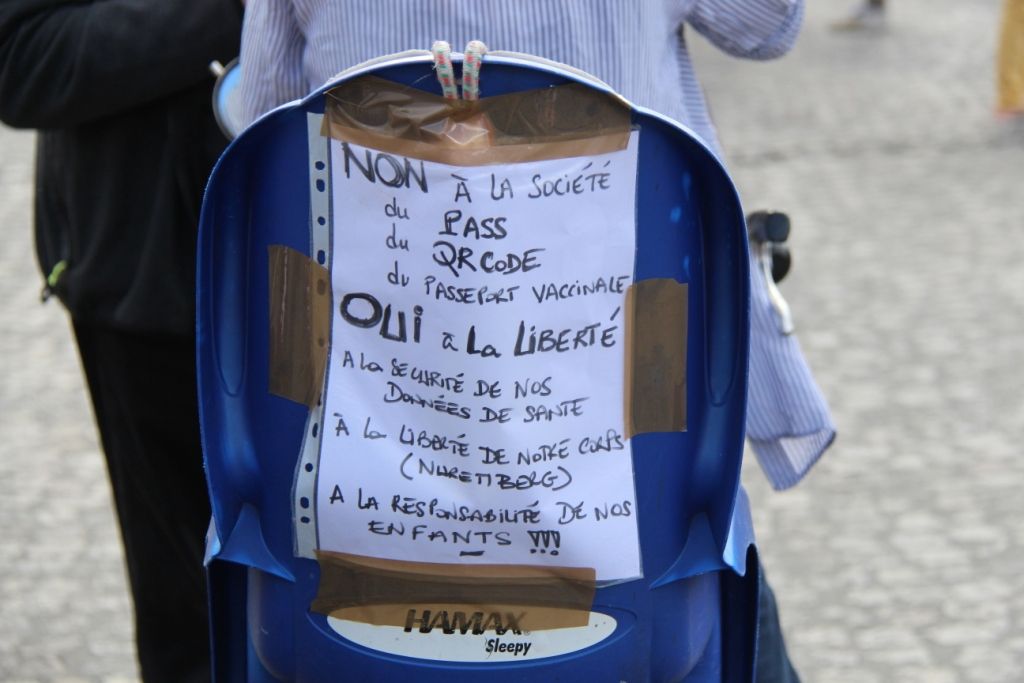 NON À LA SOCIÉTÉ
du PASS
du QR CODE
du PASSEPORT VACCINALE
OUi à La LIBERTÉ
A La SECURITÉ DE NOS
DONNÉES DE SANTE
À La LIBERTÉ DE NOTRE CORPS
(NUREMBERG)
A LA RESPONSABILITÉ DE NOS
ENFANTS !!!
HAMAX
Sleepy